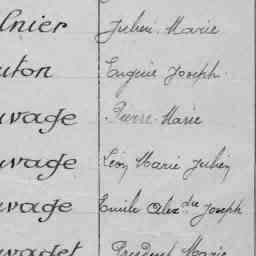 lnier Julien Marie
uton Eugène Joseph
uvage Pierre Marie
uvage Léon Marie Julien
uvage Emile Alexdre Joseph
uvaget Prudent Marie